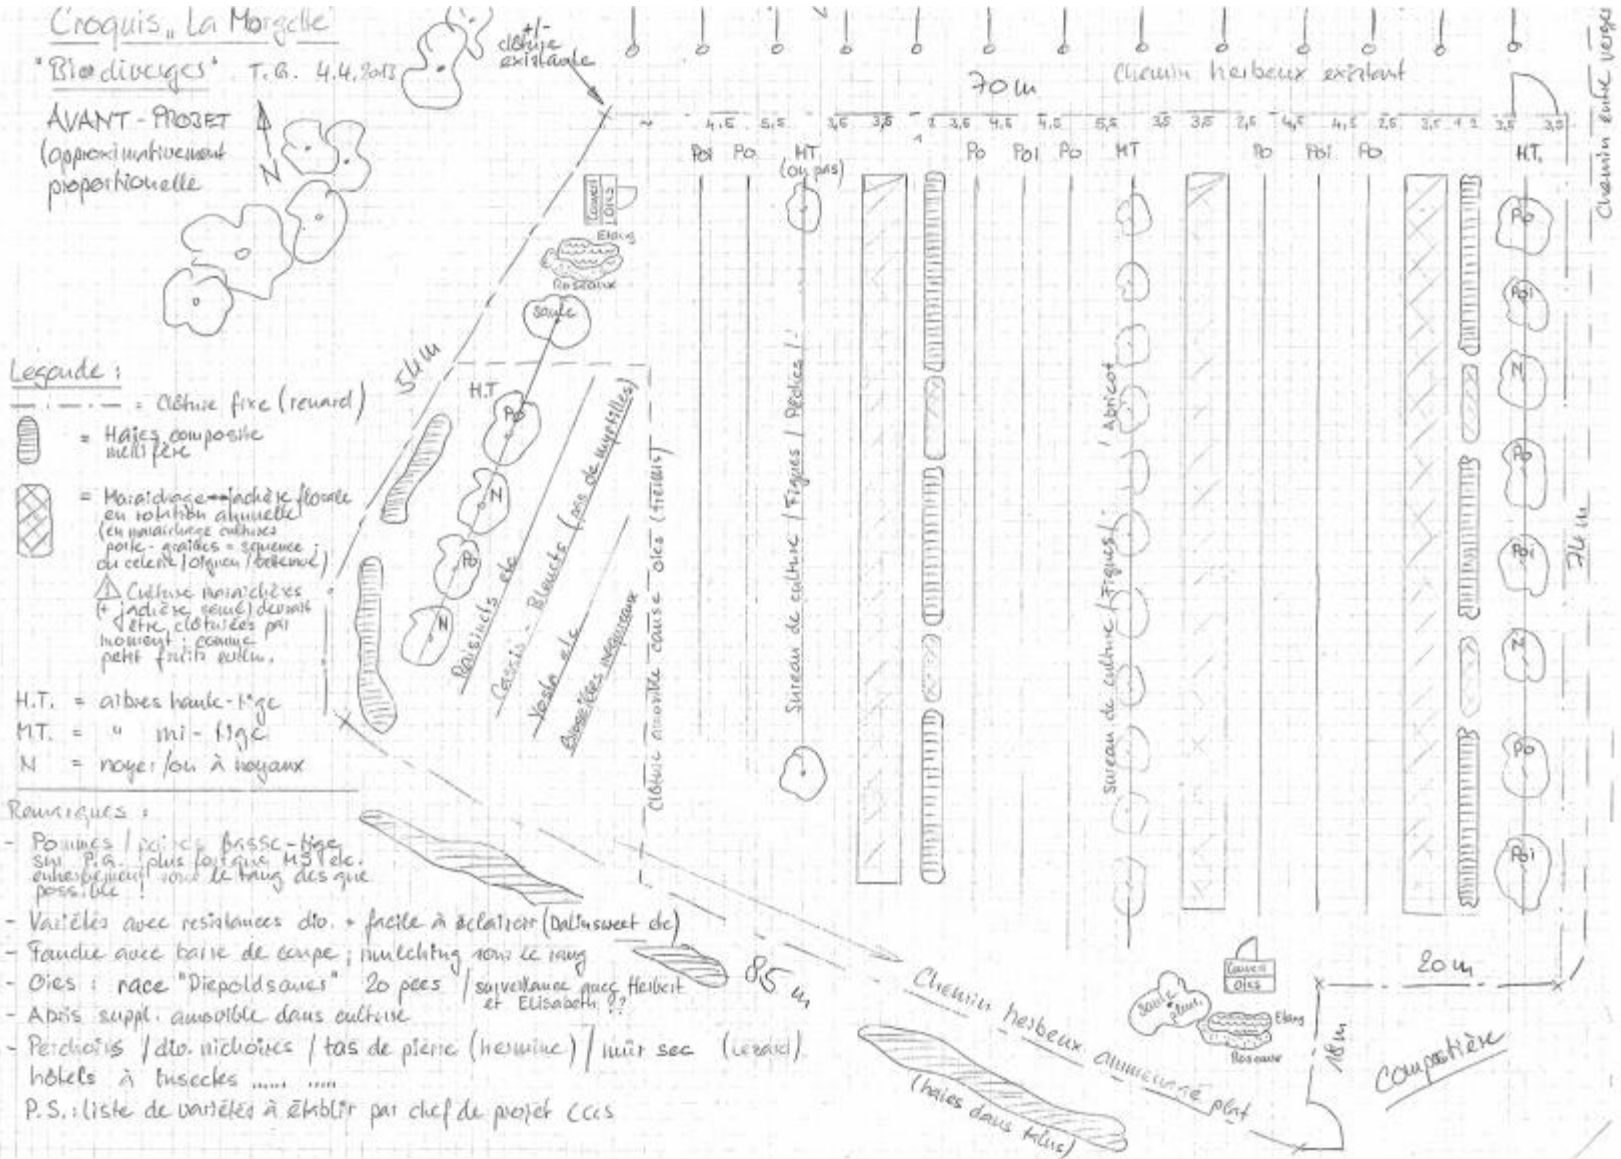 Croquis „La Morgette"
"Biodiverges" T.G. 4.4.2013
AVANT-PROJET
(approximativement
proportionelle
N
+/-
clôture
existante
70 m
Chemin herbeux existant
Chemin entre verger
~ 4,5 5,5 3,5 3,5 1 2 3,5 4,5 4,5 5,5 3,5 3,5 2,5 4,5 4,5 2,5 3,5 1 2 3,5 3,5
Poi Po HT
(ou pas)
Po Poi Po MT Po Poi Po H.T.
Couvert
Oies
Etang
Roseaux
Saule
54 m
H.T.
Po
N
Po
N
Raisinets etc
Cassis - Bleuets (pas de myrtilles)
Yosta etc
Groseilles
Clôture amovible cause oies (treillis)
Sureau de culture / Figues / Pêches !
Sureau de culture / Figues / Abricot
Po
Poi
N
Po
Poi
N
Po
Poi
74 m
Légende :
= Clôture fixe (renard)
= Haies composite
mellifère
= Maraîchage jachère florale
en rotation annuelle
(en maraîchage cultures
porte-graines = semence
ou celeri / oignon / betterave)
Culture maraîchères
(+ jachère semé) devrait
être clôturées par
moment : comme
petit fruits
H.T. = arbres haute-tige
MT. = " mi-tige
N = noyer / ou à noyaux
Remarques :
- Pommes / poires basse-tige
sur P.G. plus fort que M9 etc.
enherbement sous le rang dès que
possible !
- Variétés avec resistances div. + facile à éclaircir (Dalinsweet etc)
- Fauche avec barre de coupe ; mulching sous le rang
- Oies : race "Diepoldsauer" 20 pces / surveillance avec Herbert
et Elisabeth ??
- Abris suppl. amovible dans culture
- Perchoirs / div. nichoires / tas de pierre (hermine) / mûr sec (lezard)
hôtels à insectes ...... .....
P.S. : liste de variétés à établir par chef de projet CCCS
85 m
Chemin herbeux aménagé plat
(haies dans talus)
Saule
Couvert
Oies
Etang
Roseaux
20 m
18 m
Compostière